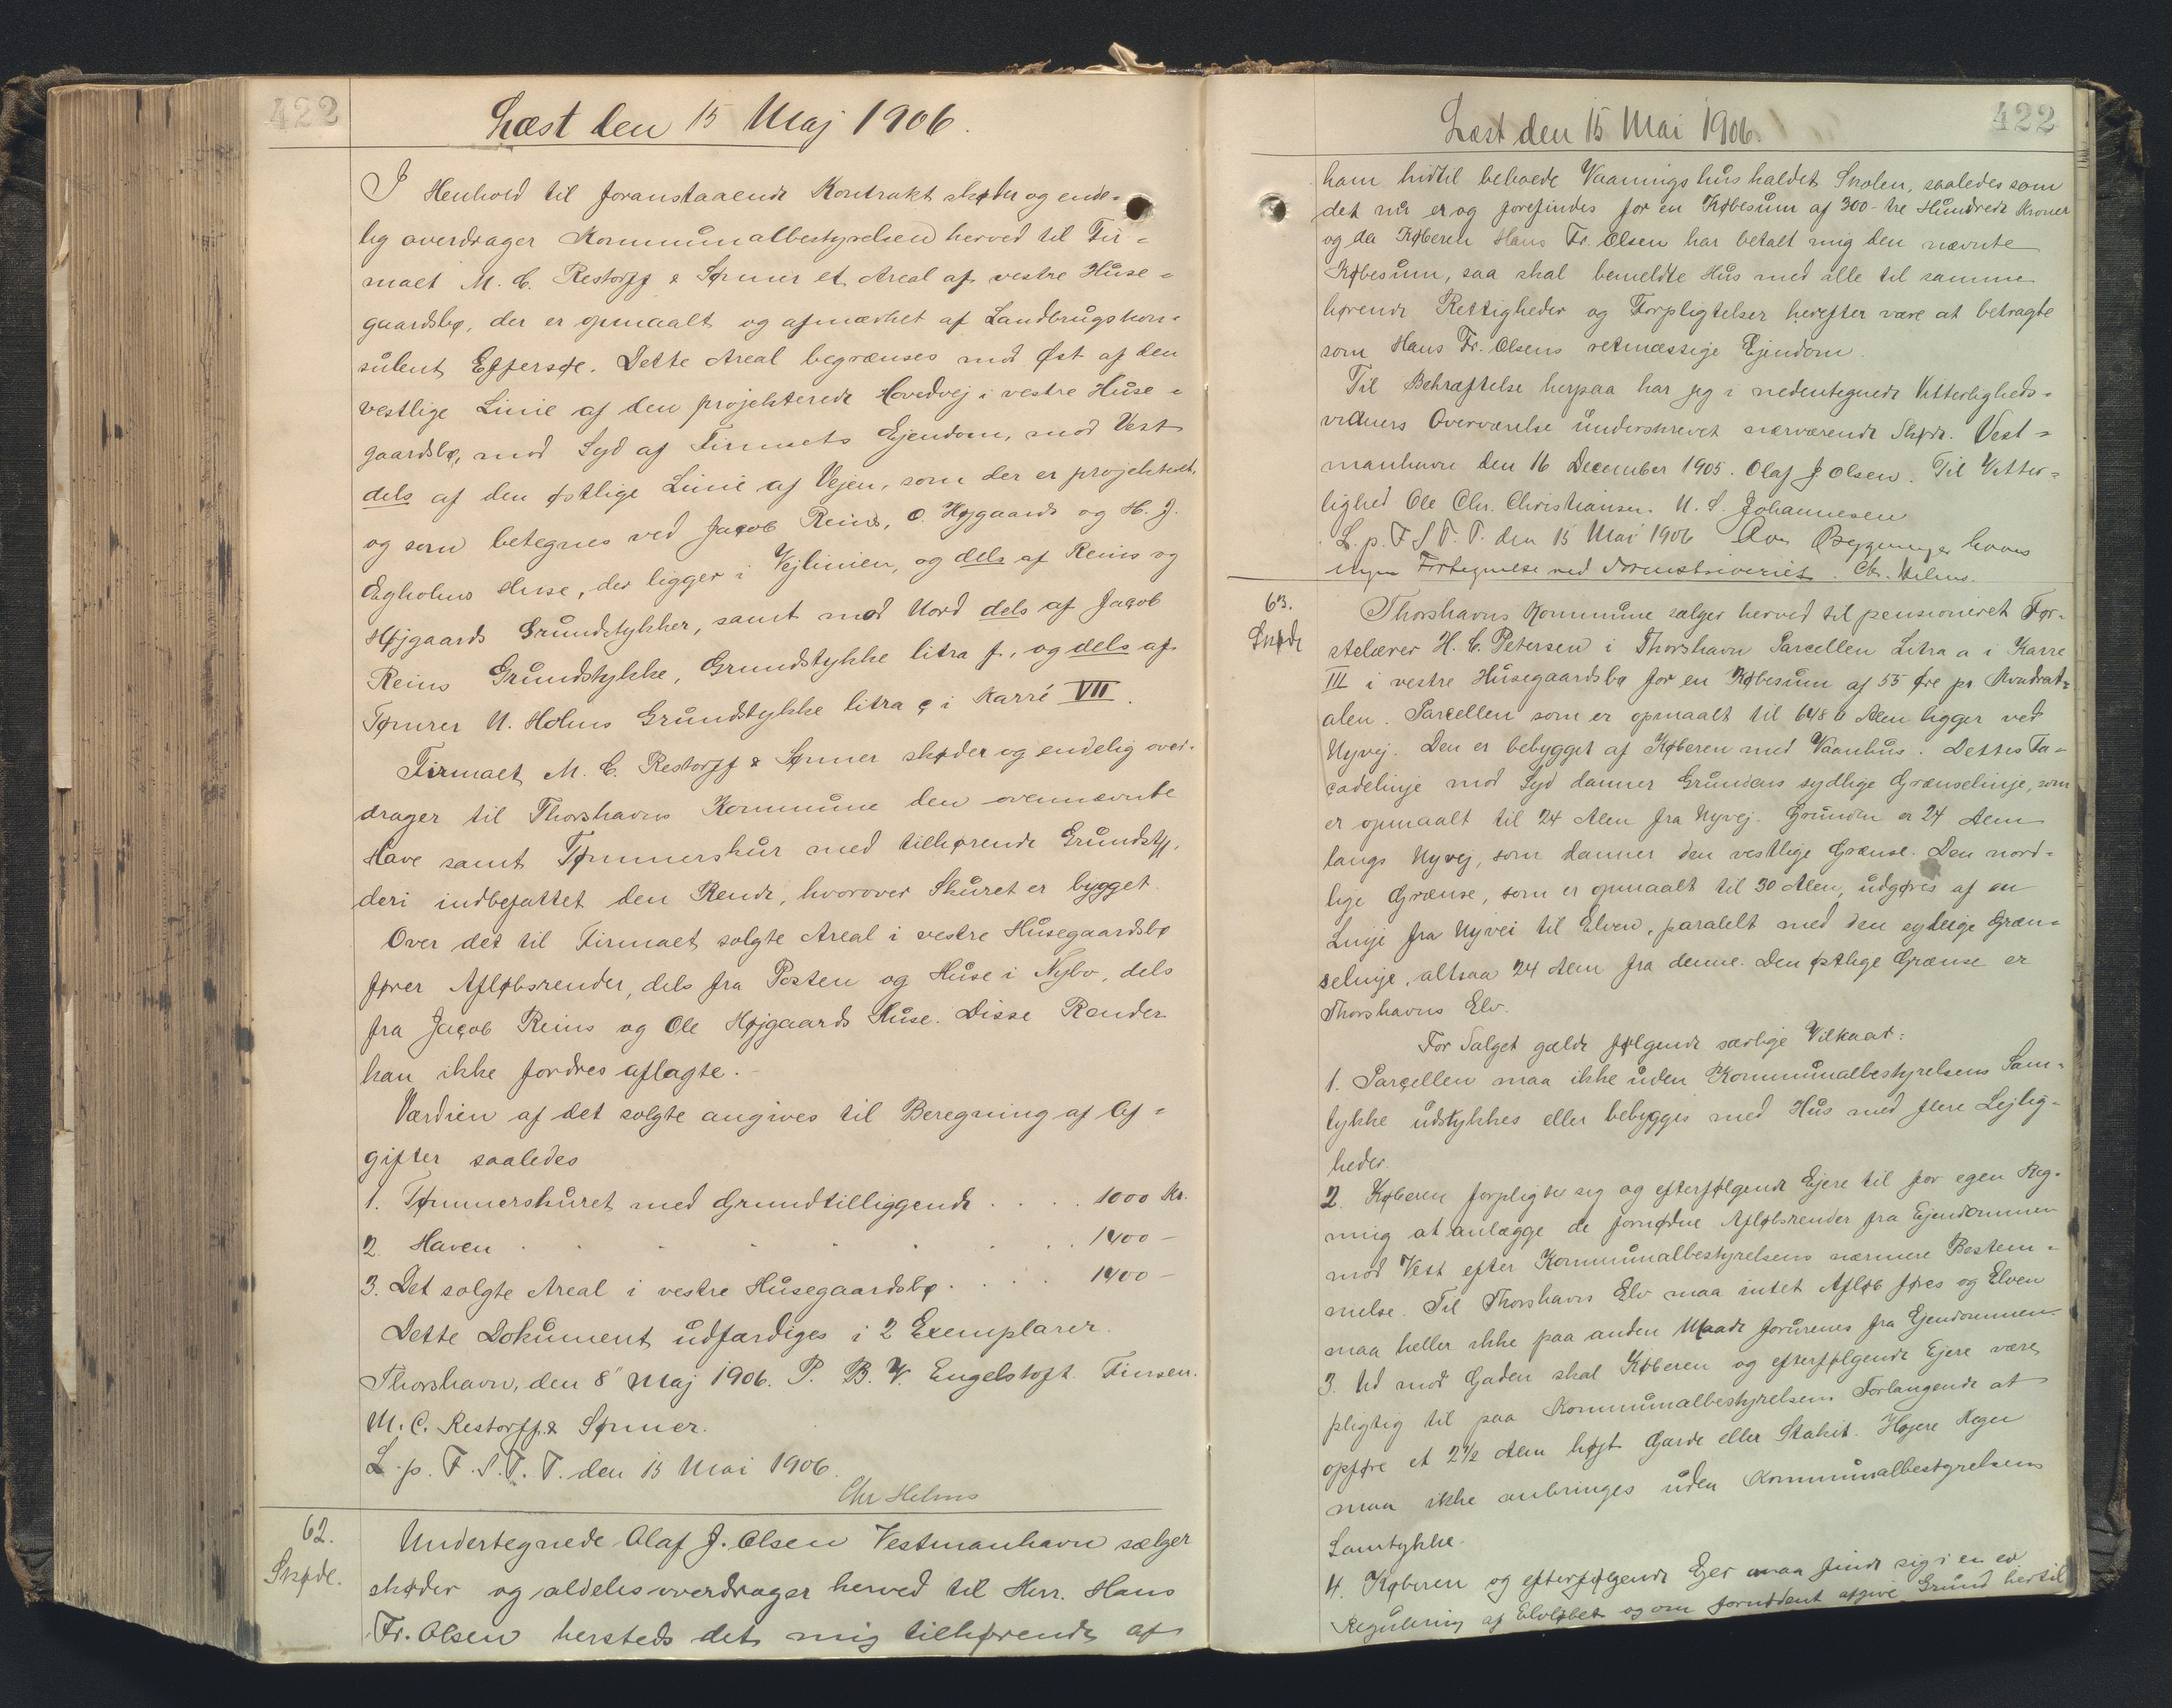 422
Læst den 15 Maj 1906.
I Henhold til foranstaaende Kontrakt skøder og ende-
lig overdrager Kommunalbestyrelsen herved til Fir-
maet M. C. Restorff & Sønner et Areal af vestre Huse-
gaardsbø, der er opmaalt og afmærket af Landbrugskon-
sulent Effersøe. Dette Areal begrænses mod Øst af den
vestlige Linie af den projekterede Hovedvej i vestre Huse-
gaardsbø, mod Syd af Firmaets Ejendom, mod Vest
dels af den østlige Linie af Vejen, som der er projekteret,
og som betegnes ved Jacob Reins, O. Højgaards og H. J.
Egholms Huse, der ligger i Vejlinien, og dels af Reins og
Højgaards Grundstykker, samt mod Nord dels af Jacob
Reins Grundstykke, Grundstykke litra f, og dels af
Tømrer N. Holms Grundstykke litra ç i Karré VII.
Firmaet M. C. Restorff & Sønner skøder og endelig over-
drager til Thorshavns Kommune den ovennævnte
Have samt Tømmerskur med tilhørende Grundst.,
deri indbefattet den Rende, hvorover Skuret er bygget.
Over det til Firmaet solgte Areal i vestre Husegaardsbø
fører Afløbsrender, dels fra Posten og Huse i Nybo, dels
fra Jaçob Reins og Ole Højgaards Huse. Disse Render
kan ikke fordres aflagte.
Værdien af det solgte angives til Beregning af Af-
gifter saaledes
1. Tømmerskuret med Grundtilliggende . . . . 1000 Kr.
2. Haven . . . . . . . 1400 —
3. Det solgte Areal i vestre Husegaardsbø . . . . 1400 —
Dette Dokument udfærdiges i 2 Exemplarer.
Thorshavn, den 8" Maj 1906. P. B. V. Engelstoft. Finsen.
M. C. Restorff & Sønner.
L. p. F. S. T. T. den 15 Mai 1906.
Chr Helms
62.
Skøde.
Undertegnede Olaf J. Olsen Vestmanhavn sælger
skøder og aldeles overdrager herved til Herr. Hans
Fr. Olsen hersteds det mig tilhørende af
422
Læst den 15 Mai 1906.
ham hidtil beboede Vaaningshus kaldet Skolen, saaledes som
det nu er og forefindes for en Købesum af 300 - tre Hundrede Kroner
og da Køberen Hans Fr. Olsen har betalt mig den nævnte
Købesum, saa skal bemeldte Hus med alle til samme
hørende Rettigheder og Forpligtelser herefter være at betragte
som Hans Fr. Olsens retmæssige Ejendom.
Til Bekræftelse herpaa har jeg i nedentegnede Vitterligheds-
vidners Overværelse underskrevet nærværende Skøde. Vest-
manhavn den 16 December 1905. Olaf J Olsen. Til Vitter-
lighed Ole Chr. Christiansen. N. S. Johannesen
L. p. F S T. T. den 15 Mai 1906 Bygninger haves
ingen Fortegnelse ved Sorenskriveriet. Chr. Helms.
63.
Skøde
Thorshavns Kommune sælger herved til pensioneret Før-
stelærer H. C. Petersen i Thorshavn Parcellen Litra a i Karre
III i vestre Husegaardsbø for en Købesum af 55 Øre pr. Kvadrat-
alen. Parcellen som er opmaalt til 648 □ Alen ligger ved
Nyvej. Den er bebygget af Køberen med Vaanhus. Dettes Fa-
çadelinje mod Syd danner Grundens sydlige Grænselinje, som
er opmaalt til 24 Alen fra Nyvej. Grunden er 24 Alen
langs Nyvej, som danner den vestlige Grænse. Den nord-
lige Grænse, som er opmaalt til 30 Alen, udgøres af en
Linje fra Nyvei til Elven, paralelt med den sydlige Græn-
selinje, altsaa 24 Alen fra denne. Den østlige Grænse er
Thorshavns Elv.
For Salget gælde følgende særlige Vilkaar:
1. Parçellen maa ikke uden Kommunalbestyrelsens Sam-
tykke udstykkes eller bebygges med Hus med flere Lejlig-
heder.
2. Køberen forpligter sig og efterfølgende Ejere til for egen Reg-
ning at anlægge de fornødne Afløbsrender fra Ejendommen
mod Vest efter Kommunalbestyrelsens nærmere Bestem-
melse. Til Thorshavns Elv maa intet Afløb føres og Elven
maa heller ikke paa anden Maade forurenes fra Ejendommen.
3. Ud mod Gaden skal Køberen og efterfølgende Ejere være
pligtig til paa Kommunalbestyrelsens Forlangende at
opføre et 2½ Alen højt Garde eller Stakit. Højere Hegn
maa ikke anbringes uden Kommunalbestyrelsens
Samtykke.
4. Køberen og efterfølgende Ejer maa finde sig i en ev.
Regulering af Elvløbet og om fornødent afgive Grund hertil